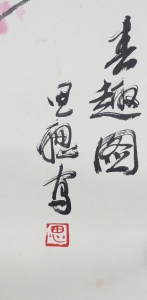 春趣图
思聪写
思